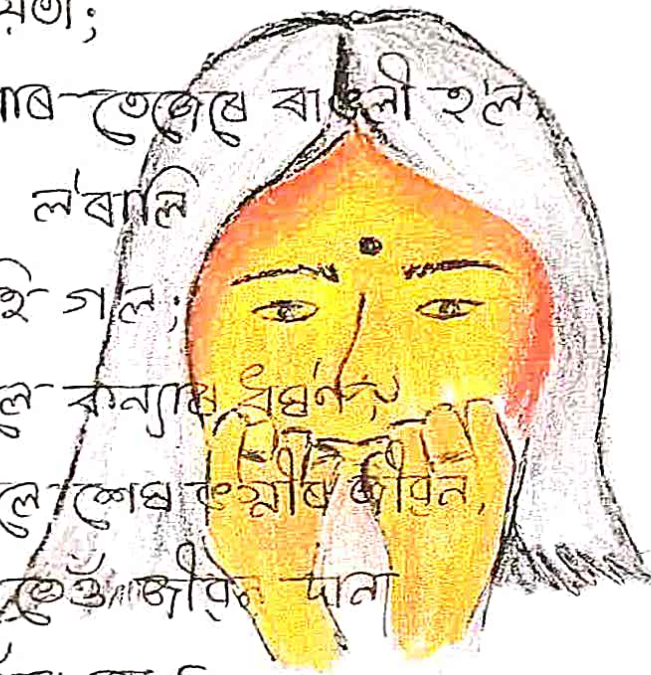 য়তা;
াৰ তেজেৰে ৰাঙলী হ'ল,
ল'ৰালি
ই গ'ল;
লে কন্যাৰ ধৰ্ষণ
লে শেষ ভগ্নীৰ জীৱন,
তেওঁ জীৱন দান